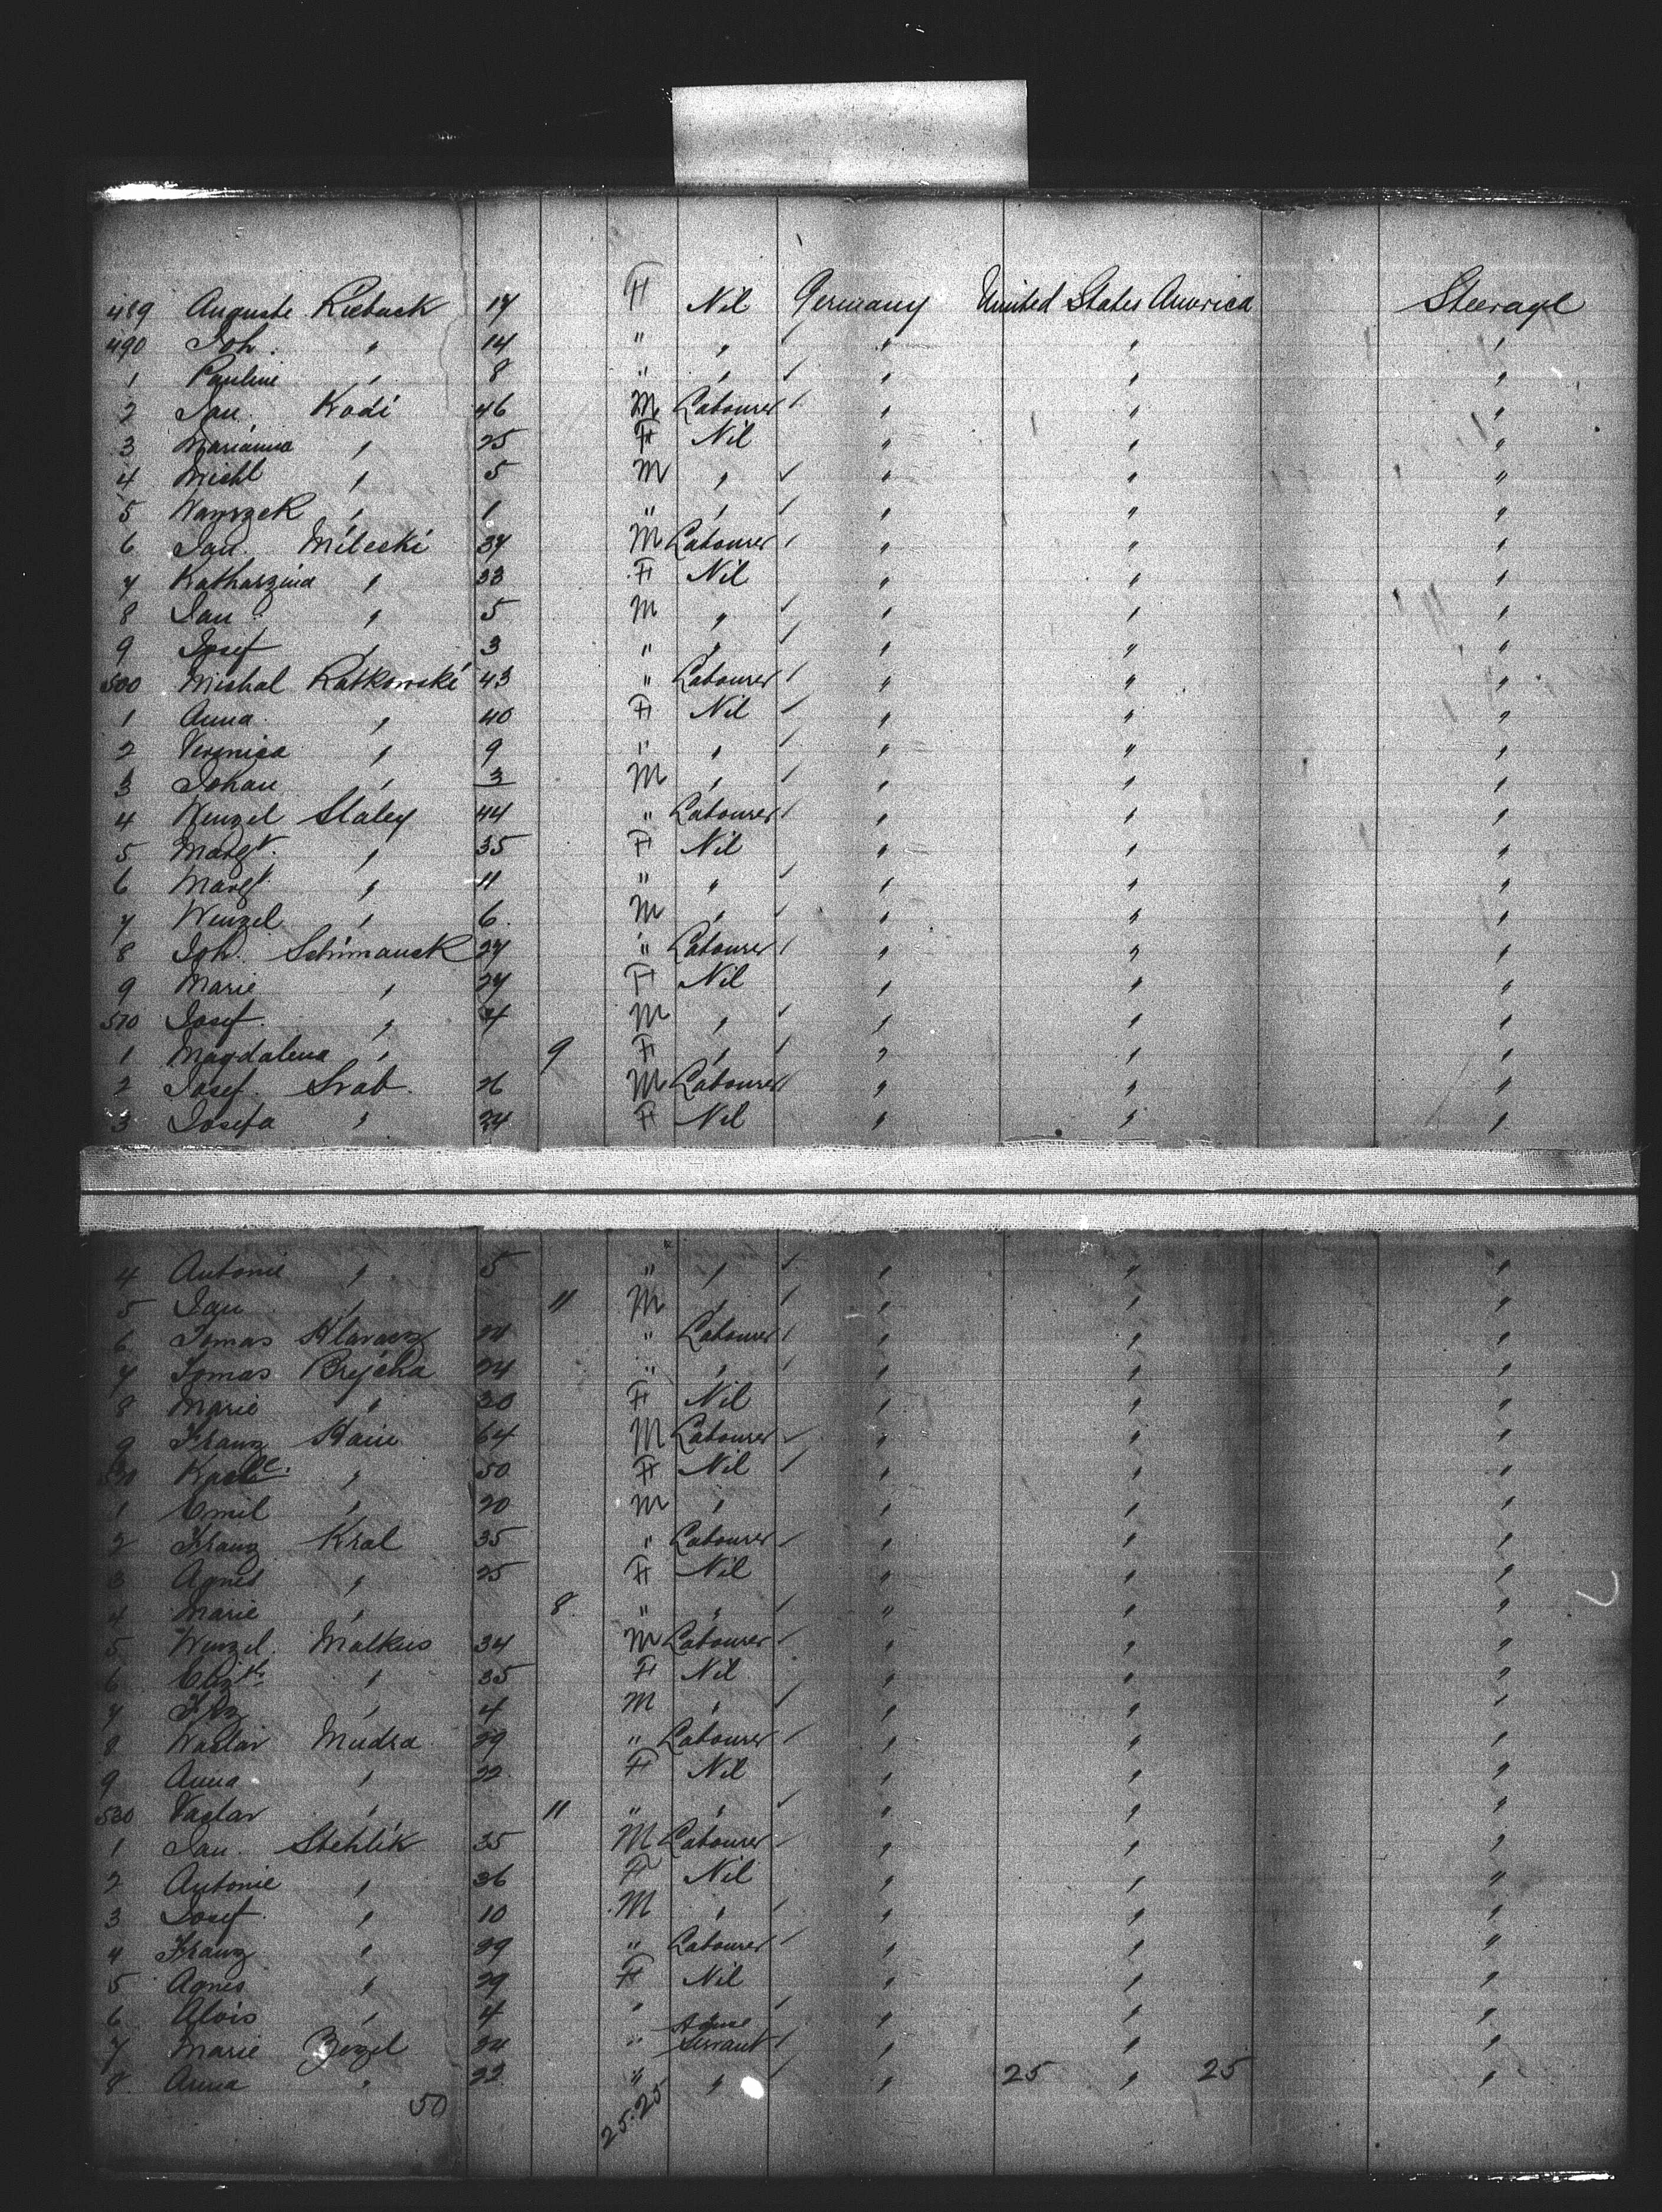 489 Auguste Rieback 17 F Nil Germany United States America Steerage
490 Joh. " 14 " " " " "
1 Pauline " 8 " " " " "
2 Jan Kadi 46 M Labourer " " "
3 Marianna " 25 F Nil " " "
4 Michl " 5 M " " " "
5 " 1 " " " " "
6 Jan Mileski 37 M Labourer " " "
7 Katharzina " 33 F Nil " " "
8 Jan " 5 M " " " "
9 Josef " 3 " " " " "
500 Michal Ratkowski 43 " Labourer " " "
1 Anna " 40 F Nil " " "
2 Veronica " 9 " " " " "
3 Johan " 3 M " " " "
4 Wenzel Slaley 44 " Labourer " " "
5 Margt. " 35 F Nil " " "
6 Margt. " 11 " " " " "
7 Wenzel " 6 M " " " "
8 Joh. Schimanek 27 " Labourer " " "
9 Marie " 27 F Nil " " "
510 Josef " 4 M " " " "
1 Magdalena " 9 F " " " "
2 Josef Srab 26 M Labourer " " "
3 Josefa " 24 F Nil " " "
4 Antonie " 5 " " " " "
5 Jan " 11 M " " " "
6 Tomas 24 " Labourer " " "
7 Tomas Brejcha 24 " " " " "
8 Marie " 30 F Nil " " "
9 Franz Haiu 64 M Labourer " " "
520 " 50 F Nil " " "
1 Emil " 20 M " " " "
2 Franz Kral 35 " Labourer " " "
3 Agnes " 25 F Nil " " "
4 Marie " 8 " " " " "
5 Wenzel Malkus 34 M Labourer " " "
6 Elizth. " 35 F Nil " " "
7 Frz " 4 M " " " "
8 Waclav Mudra 29 " Labourer " " "
9 Anna " 22 F Nil " " "
530 Vaclav " 11 " " " " "
1 Jan Stehlik 35 M Labourer " " "
2 Antonie " 36 F Nil " " "
3 Josef " 10 M " " " "
4 Franz " 29 " Labourer " " "
5 Agnes " 29 F Nil " " "
6 Alois " 4 " " " "
7 Marie Zezel 24 " Servant " " "
8 Anna " 22 " " " 25 " 25 "
50 25.25